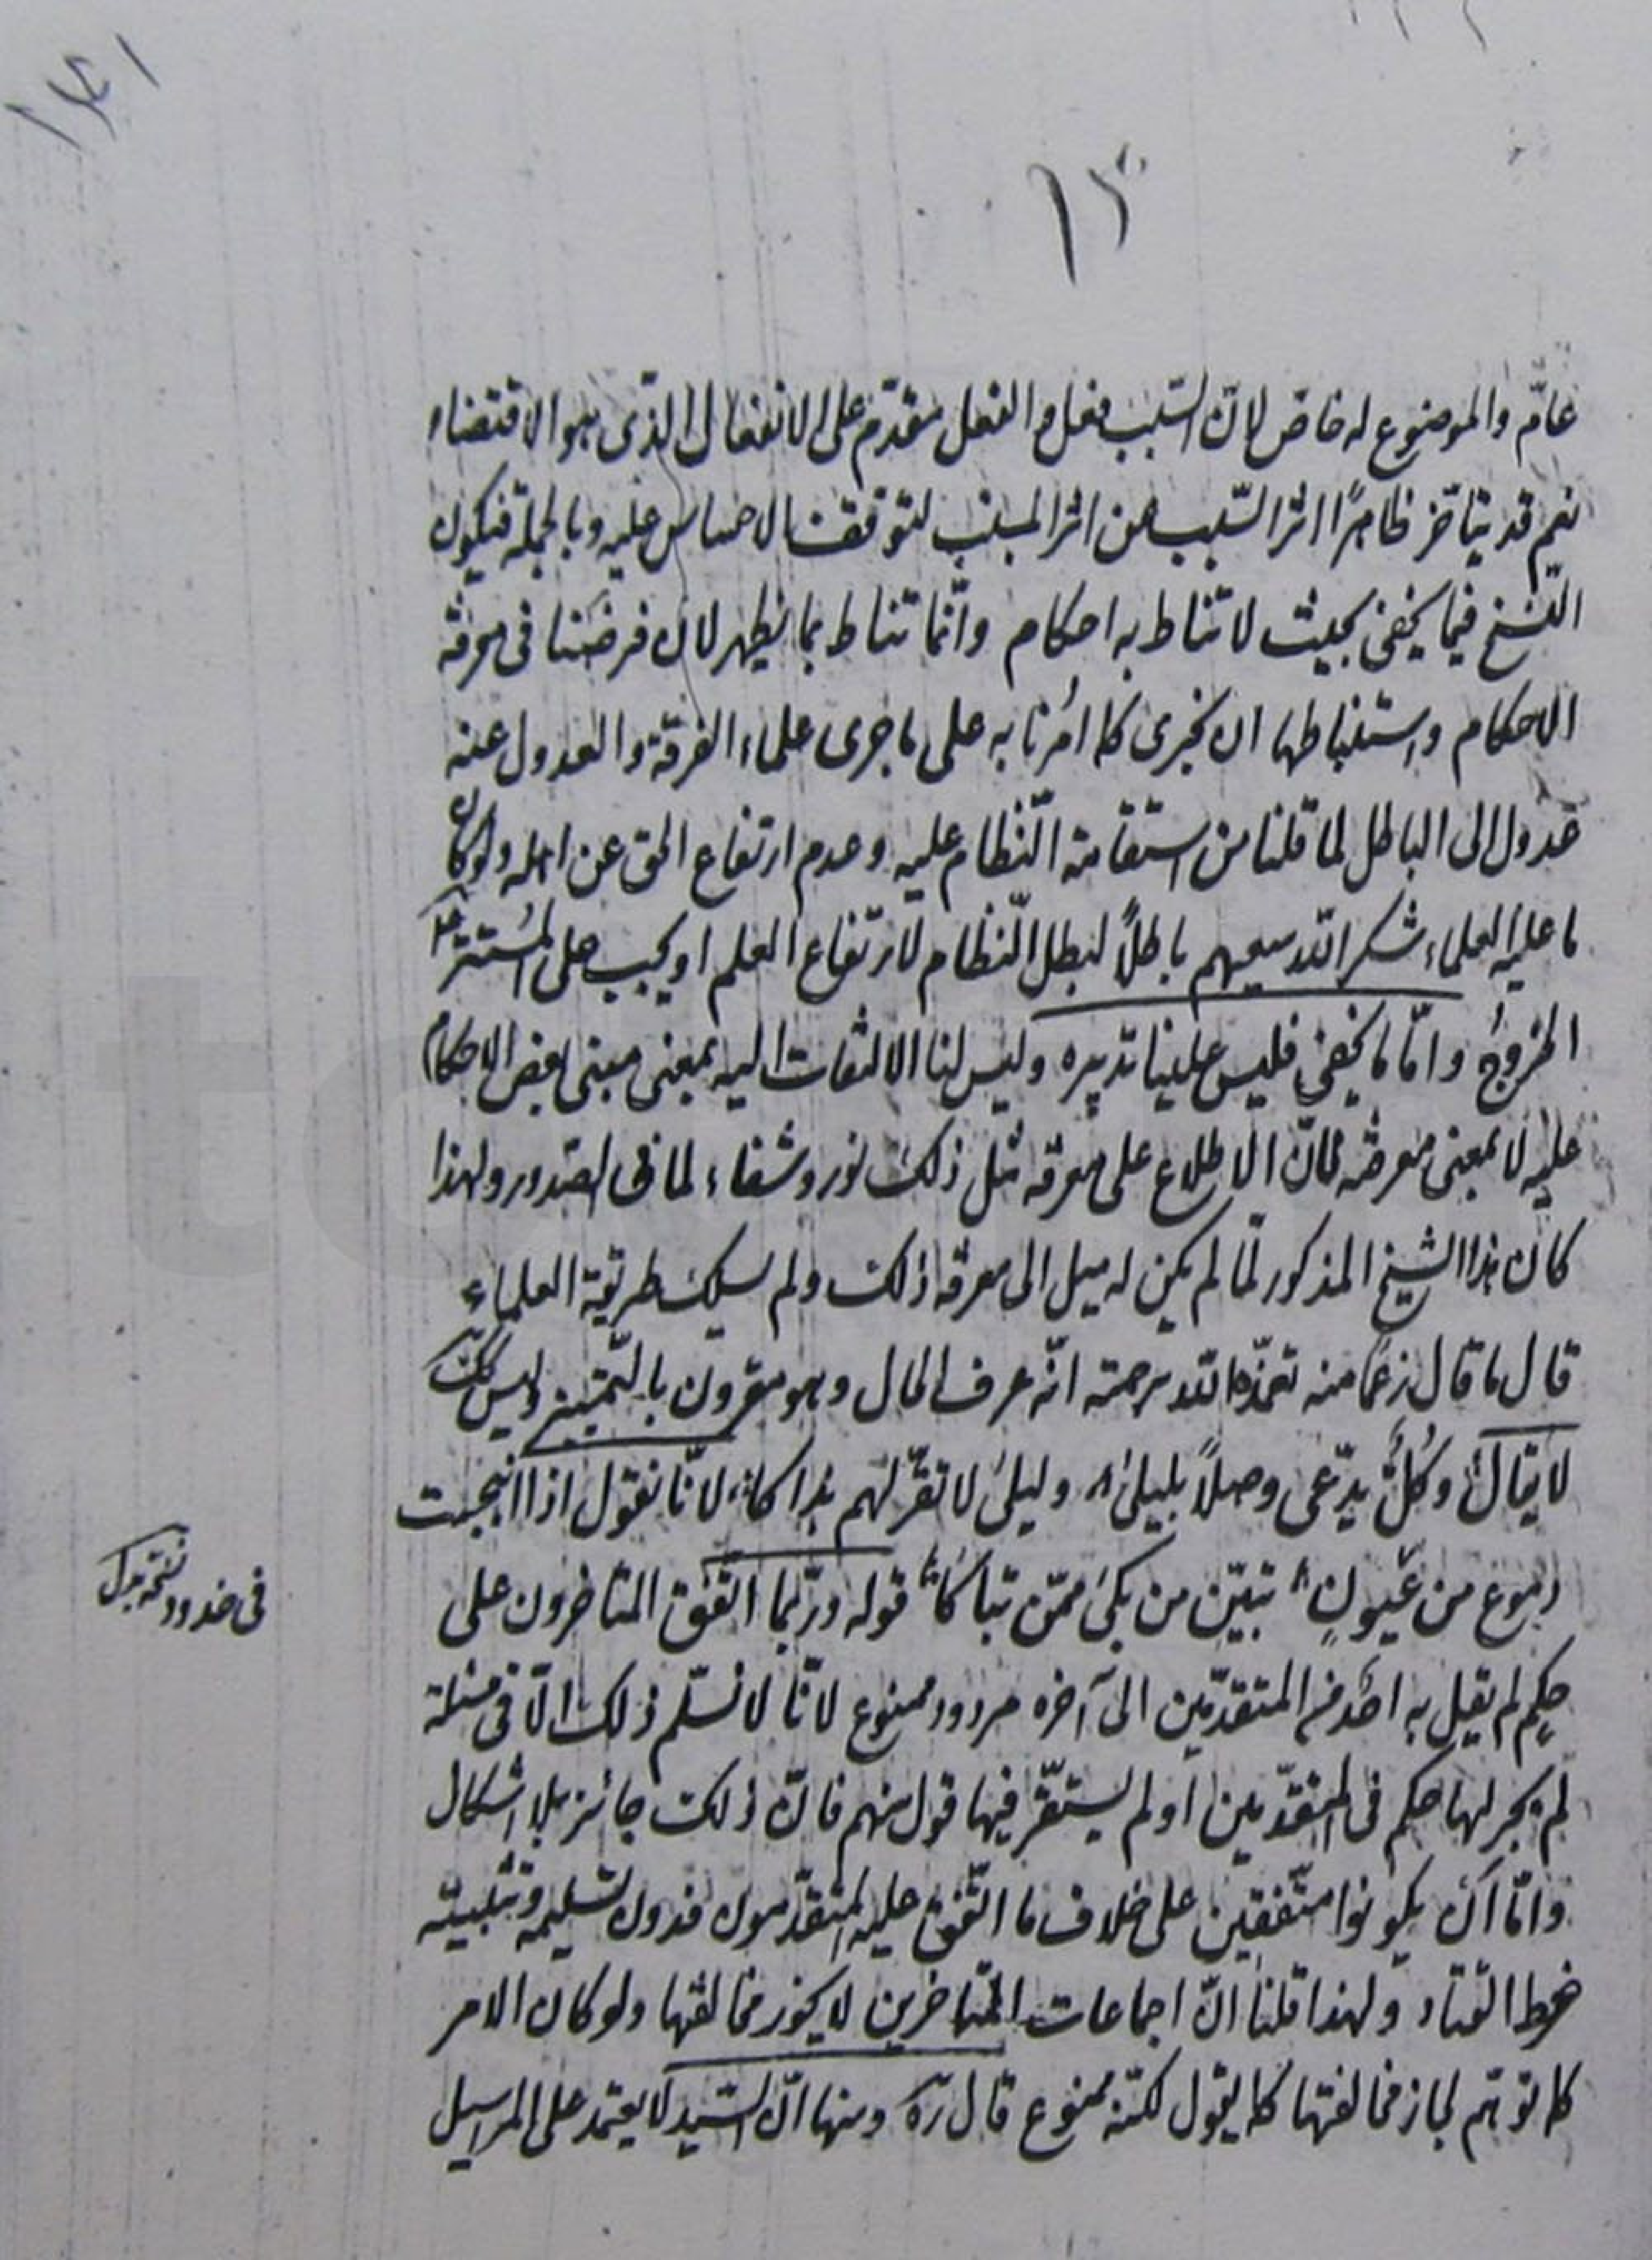 ١٤١
١٣
عامّ والموضوع له خاص لانّ السّبب فعل والفعل مقدّم على الانفعال الذى هو الاقتضاء
نعم قد يتاخّر ظاهرًا اثر السّبب عن اثر المسبّب لتوقف الاحساس عليه وبالجملة فيكون
النّسخ فيما يخفى بحيث لا تناط به احكام وانّما تناط بما يظهر لان فرضنا فى معرفة
الاحكام واستنباطها ان نجرى كما امُرنا به على ما جرى علماء الفرقة والعدول عنه
عدول الى الباطل لما قلنا من استقامة النّظام عليه وعدم ارتفاع الحق عن اهله ولو كان
ما عليه العلماء شكر اللّه سعيهم باطلاً لبطل النّظام لارتفاع العلم او يجب على المُستتر ع
الخروجُ وامّا ما يخفى فليس علينا تدبيره وليس لنا الالتفات اليه بمعنى مبنى بعض الاحكام
عليه لا بمعنى معرفته فانّ الاطلاع على معرفة مثل ذلك نور وشفاء لما فى الصّدور ولهذا
كان هذا الشيخ المذكور لمّا لم يكن له ميل الى معرفة ذلك ولم يسلك طريقة العلماء
قال ما قال زعمًا منه تغمّده اللّه برحمته انّه عرف الحال وهو مقرون بالتّمييز وليس كك
لا يقال وكُلٌّ يدّعى وصلاً بليلى وليلى لا تقرّ لهم بذاكا لانّا نقول اذا انبجست
دموع من عُيونٍ تبيّن من بكى ممّن تباكا قوله وربّما اتّفق المتاخرون على
فى خدود نسخه بدل
حكم لم يقل به احُد من المتقدّمين الى آخره مردود ممنوع لانّا لا نسلّم ذلك الّا فى مسئلة
لم يجر لها حكم فى المتقدّمين او لم يستقّر فيها قول منهم فانّ ذلك جائز بلا اشكال
وامّا ان يكونوا متّفقين على خلاف ما اتّفق عليه المتقدّمون فدون تسليمه وتثبيته
خرط القتاد ولهذا قلنا انّ اجماعات المتاخرين لا يجوز مخالفتها ولو كان الامر
كما توهّم لجاز مخالفتها كما يقول لكنّه ممنوع قال ره ومنها انّ السّيد لا يعتمد على المراسيل